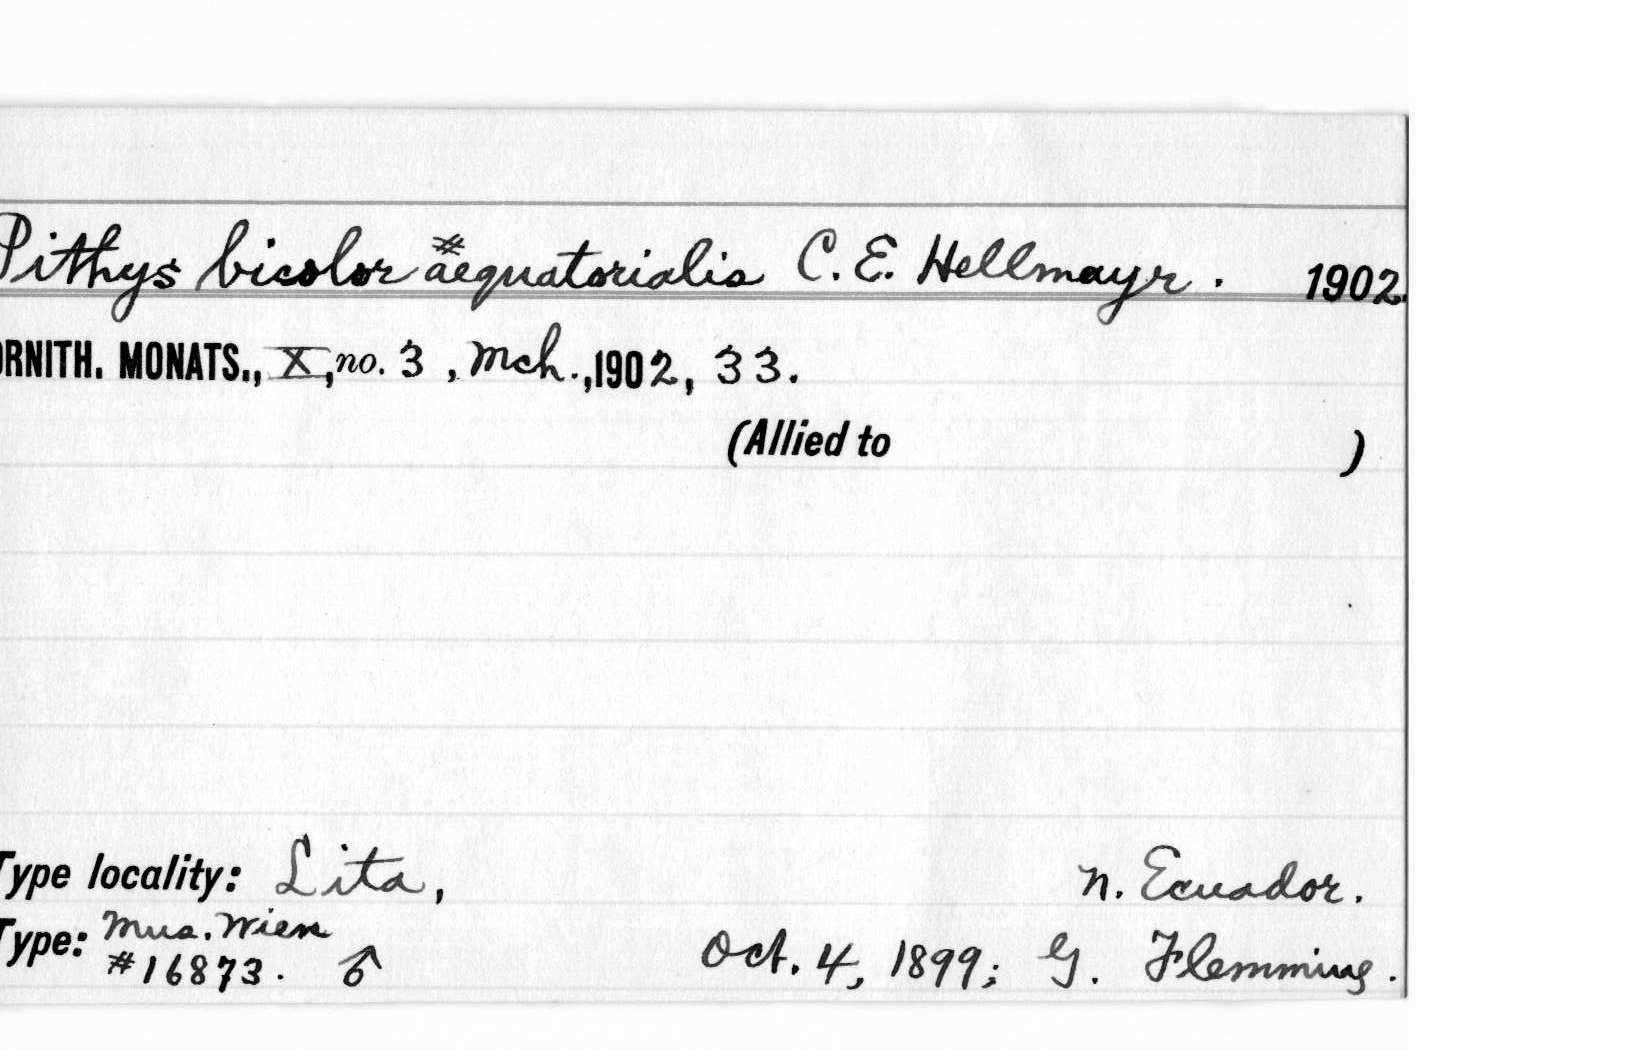 Pithys bicolor #aequatorialis C. E. Hellmayr. 1902.
ORNITH. MONATS., X, no. 3, Mch., 1902, 33.
(Allied to )
Type locality: Lita, n. Ecuador.
Type: Mus. Wien
#16873. ♂ Oct. 4, 1899; G. Flemming.